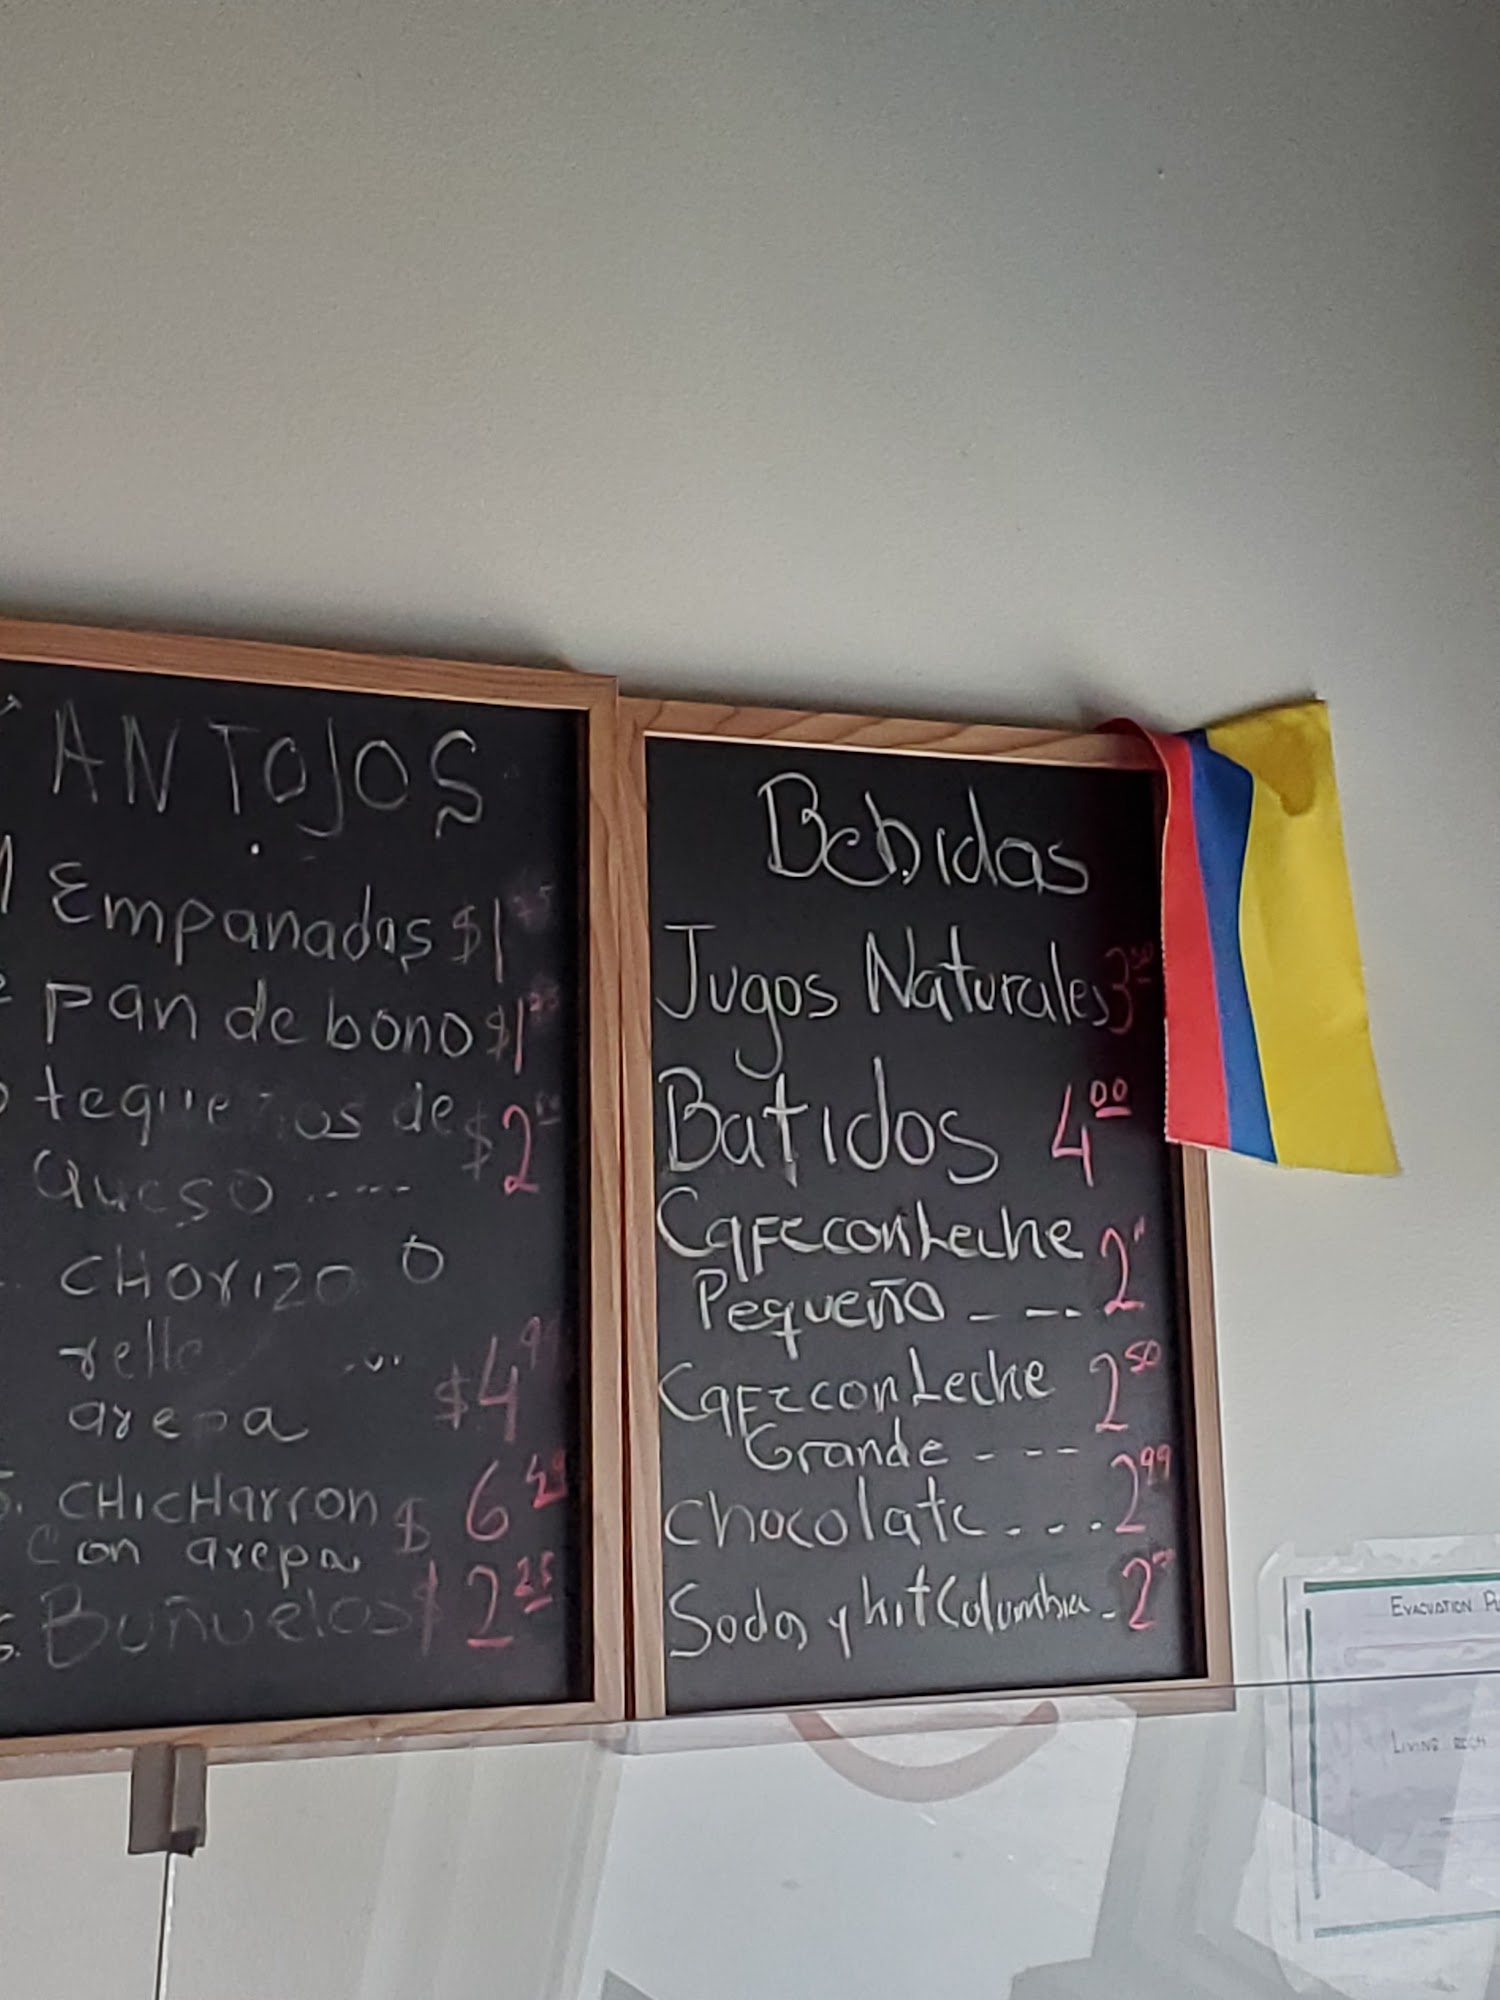 ANTOJOS
Empanadas $1 75
pan de bono $1
tequeños de $2
queso .....
CHORIZO O
relle ...
arepa $4 99
5. CHICHARRON $ 6
con arepa
6. Buñuelos $ 2 25
Bebidas
Jugos Naturales 3 50
Batidos 4 00
Cafe con Leche 2
Pequeño - - - -
Cafe con Leche 2 50
Grande - - - -
chocolate - - - - 2 99
Sodas y hit Columbia - 2
EVACUATION
LIVING ROOM